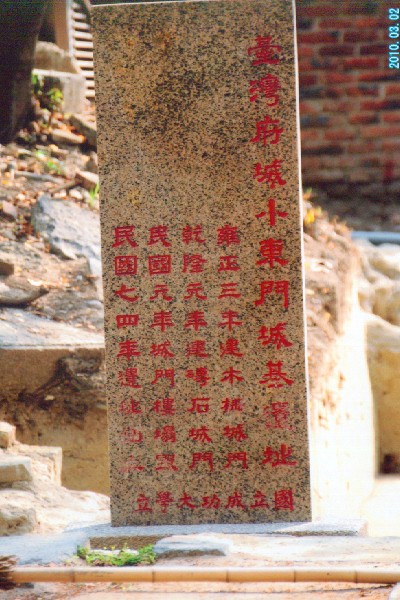 臺灣府城小東門城基遺址
雍正三年建木柵城門
乾隆元年建磚石城門
民國元年城門樓塌
民國七四年遷修
國立成功大學立
2010.03.02